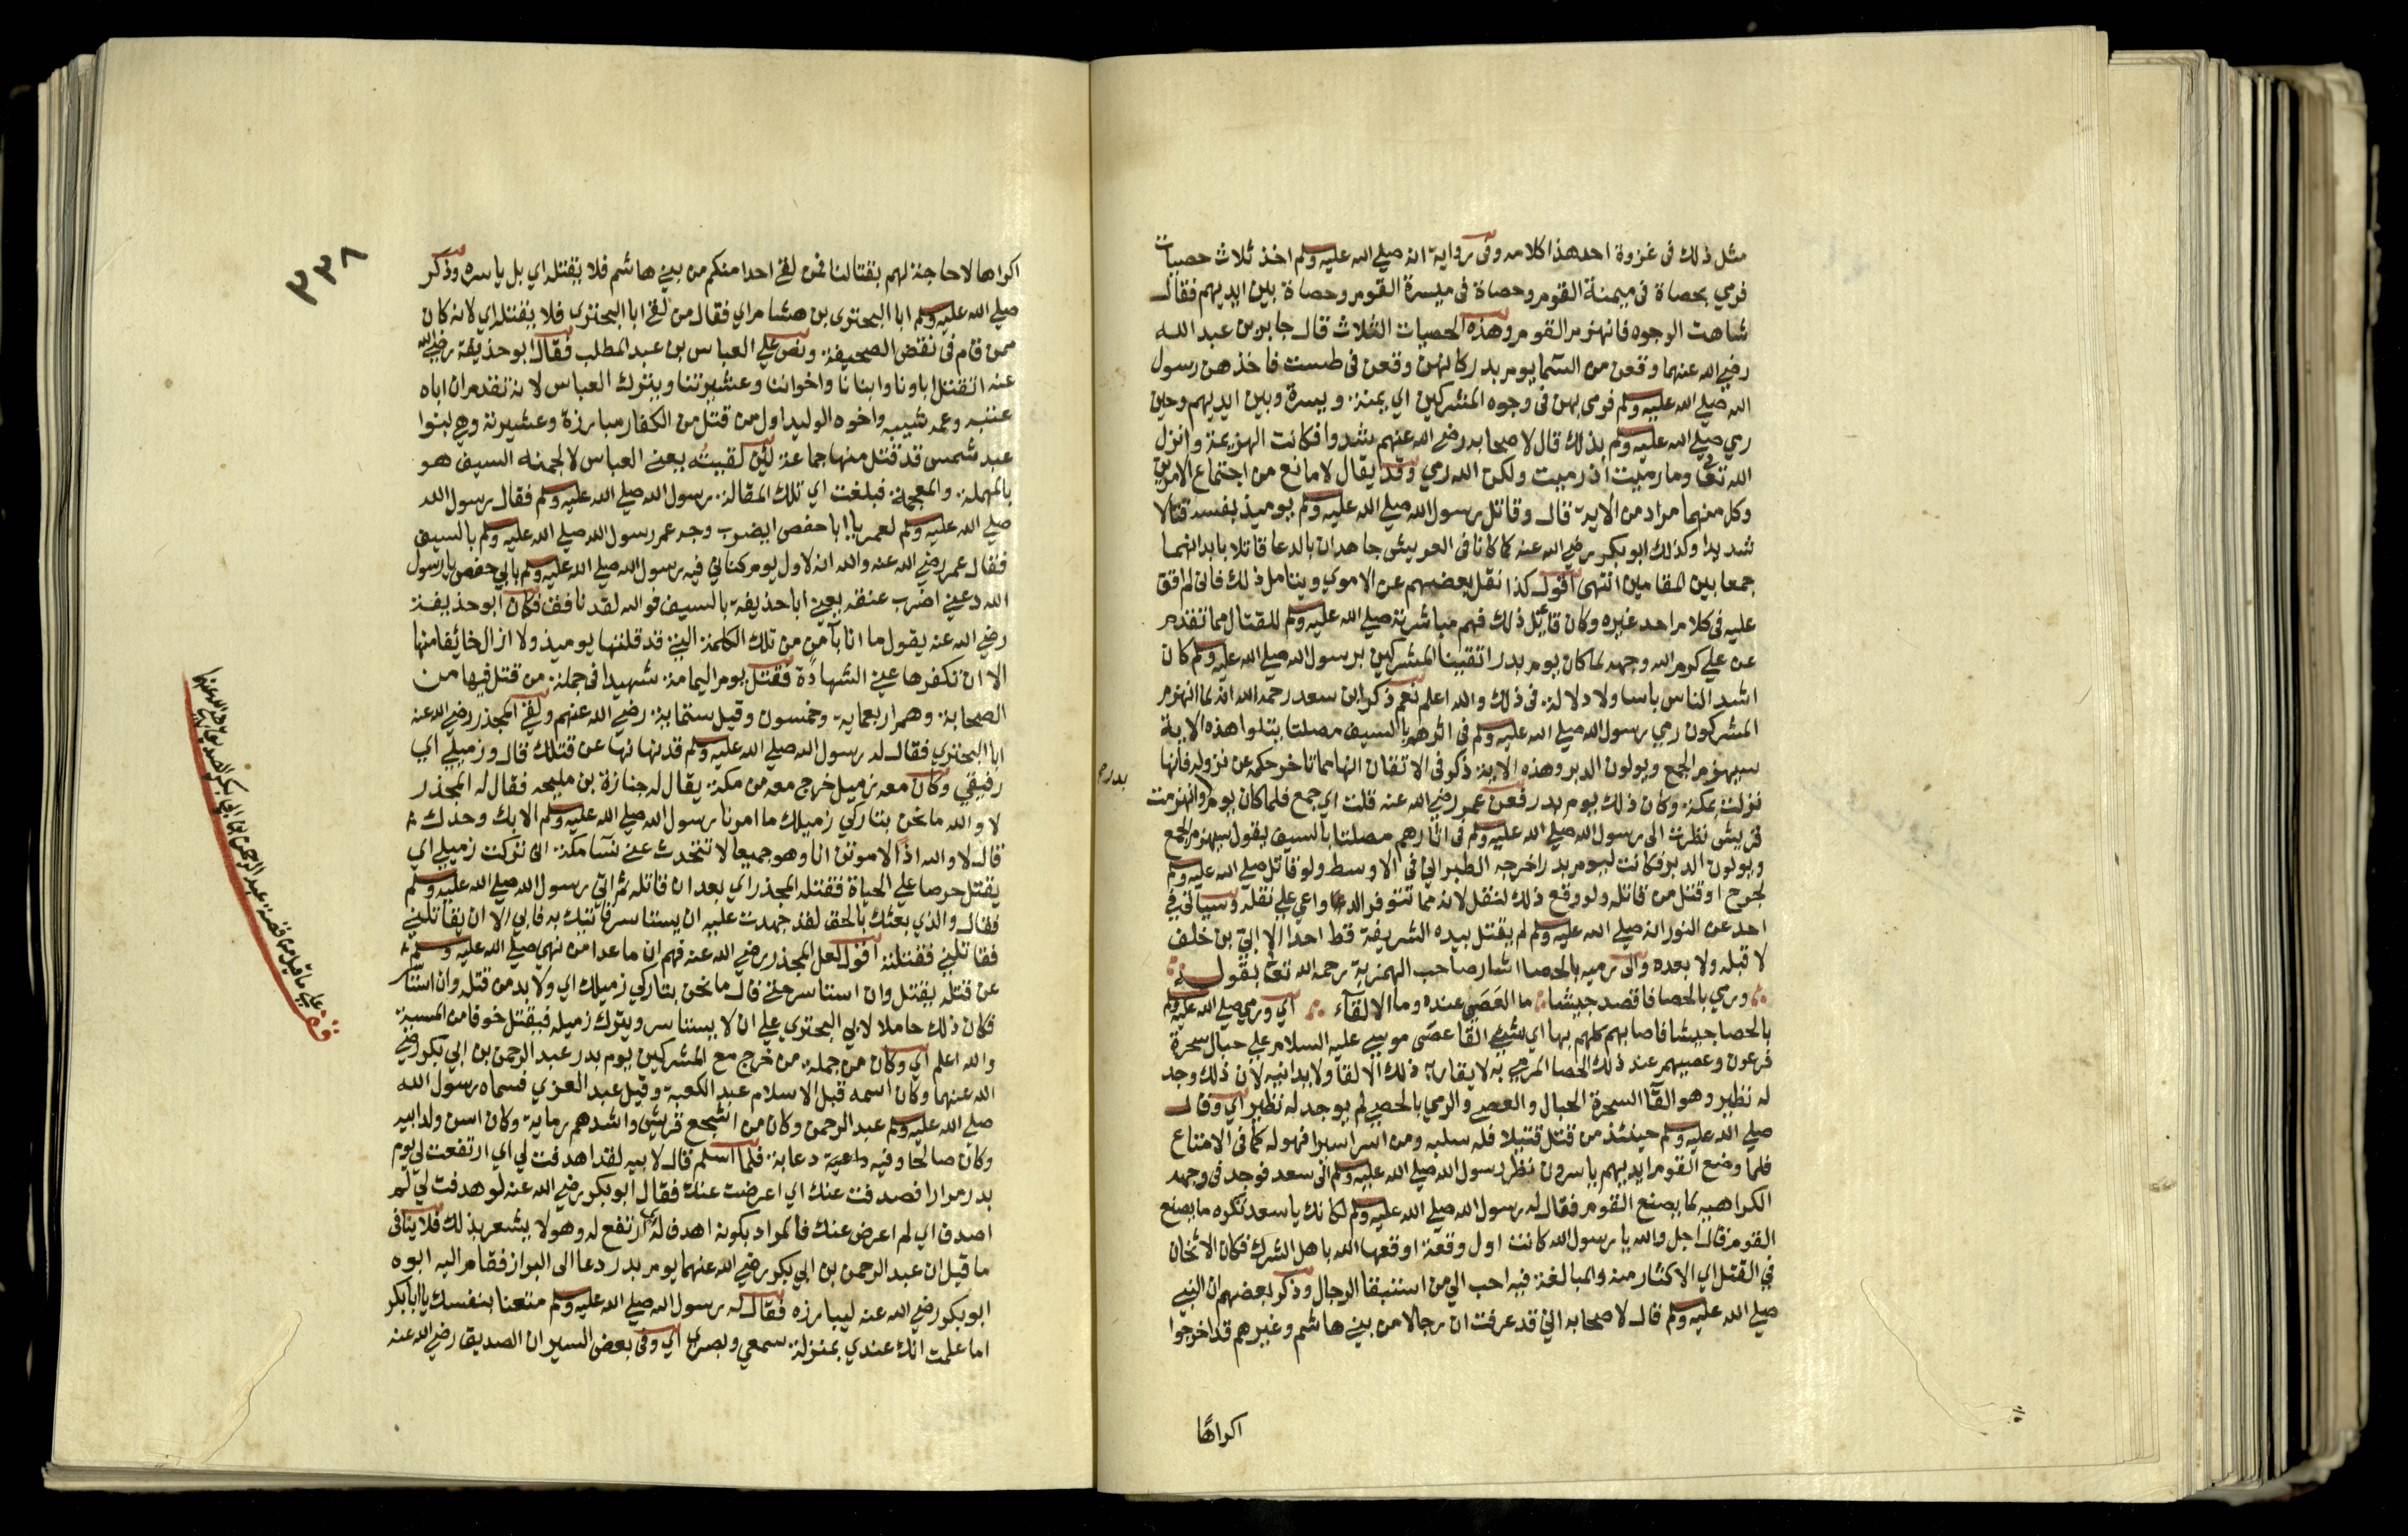 مثل ذلك فى غزوة احد هذا كلامه وفى رواية انه صلى الله عليه وسلم اخذ ثلاث حصيات
فرمي بحصاة فى ميمنة القوم وحصاة فى ميسرة القوم وحصاة بين ايديهم فقال
شاهت الوجوه فانهزم القوم وهذه الحصيات الثلاث قال جابر بن عبد الله
رضي الله عنهما وقعن من السما يوم بدر كانهن وقعن فى طست فاخذهن رسول
الله صلى الله عليه وسلم فرمى بهن فى وجوه المشركين اي يمنة ويسرة وبين ايديهم وحين
رمى صلى الله عليه وسلم بذلك قال لاصحابه رضي الله عنهم شدوا فكانت الهزيمة وانزل
الله تعالى وما رميت اذ رميت ولكن الله رمي وقد يقال لا مانع من اجتماع الامرين
وكل منهما مراد من الاية قال وقاتل رسول الله صلى الله عليه وسلم يوميذ بنفسه قتالا
شديدا وكذلك ابو بكر رضي الله عنه كما كانا فى العريش جاهدان بالدعا قاتلا بابدانهما
جمعا بين المقامين انتهى اقول كذا نقل بعضهم عن الاموي ويتامل ذلك فانى لم اقف
عليه فى كلام احد غيره وكان قائل ذلك فهم مباشرته صلى الله عليه وسلم للقتال مما تقدم
عن علي كرم الله وجهه لما كان يوم بدر اتقينا المشركين برسول الله صلى الله عليه وسلم كان
اشد الناس باسا ولا دلالة فى ذلك والله اعلم نعم ذكر ابن سعد رحمه الله انه لما انهزم
المشركون رمي رسول الله صلى الله عليه وسلم فى اثرهم بالسيف مصلتا يتلوا هذه الاية
سيهزم الجمع ويولون الدبر وهذه الاية ذكر فى الاتقان انها مما تاخر حكمه عن نزوله فانها
نزلت بمكة وكان ذلك يوم بدر فعن عمر رضي الله عنه قلت اي جمع فلما كان يوم وانهزمت
بدر صح
قريش نظرت الى رسول الله صلى الله عليه وسلم فى اثارهم مصلتا بالسيف يقول سيهزم الجمع
ويولون الدبر فكانت ليوم بدر اخرجه الطبراني فى الاوسط ولو قاتل صلى الله عليه وسلم
لجرح او قتل من قاتله ولو وقع ذلك لنقل لانه مما تتوفر الدواعي على نقله وسياتي في
احد عن النور انه صلى الله عليه وسلم لم يقتل بيده الشريفة قط احدا الا ابيّ بن خلف
لا قبله ولا بعده والى رميه بالحصا اشار صاحب الهمزية رحمه الله تعالى بقوله
ورمي بالحصا فاقصد جيشا ما العصي عنده وما الالقآء اي ورمي صلى الله عليه وسلم
بالحصا جيشا فاصابهم كلهم بها اي شيئ القا عصى موسي عليه السلام علي حبال سحرة
فرعون وعصيهم عند ذلك الحصا المرمي به لا يقاربه ذلك الالقا ولا يدانيه لان ذلك وجد
له نظير وهو القآ السحرة الحبال والعصي والرمي بالحصي لم يوجد له نظير اي وقال
صلى الله عليه وسلم حينئذ من قتل قتيلا فله سلبه ومن اسر اسيرا فهو له كما فى الامتاع
فلما وضع القوم ايديهم ياسرون نظر رسول الله صلى الله عليه وسلم الى سعد فوجد فى وجهه
الكراهية لما يصنع القوم فقال له رسول الله صلى الله عليه وسلم لكانك يا سعد تكره ما يصنع
القوم قال اجل والله يا رسول الله كانت اول وقعة اوقعها الله باهل الشرك فكان الاثخان
في القتل اي الاكثار منه والمبالغة فيه احب الي من استبقا الرجال وذكر بعضهم ان النبي
صلى الله عليه وسلم قال لاصحابه اني قد عرفت ان رجالا من بني هاشم وغيرهم قد اخرجوا
اكراهًا
٣٣٨
اكراها لا حاجة لهم بقتالنا فمن لقي احدا منكم من بني هاشم فلا يقتله اي بل ياسره وذكر
صلى الله عليه وسلم ابا البحترى بن هشام اي فقال من لقي ابا البحترى فلا يقتله اي لانه كان
ممن قام فى نقض الصحيفة ونص علي العباس بن عبد المطلب فقال ابو حذيفة رضي الله
عنه اتقتل اباونا وابنانا واخواننا وعشيرتنا ويترك العباس لانه تقدم ان اباه
عتبه وعمه شيبه واخوه الوليد اول من قتل من الكفار مبارزة وعشيرته وهم بنوا
عبد شمس قد قتل منها جماعة لئن لقيته يعني العباس لالجمنه السيف هو
بالمهملة والمعجمة فبلغت اي تلك المقالة رسول الله صلى الله عليه وسلم فقال رسول الله
صلى الله عليه وسلم لعمر يا ابا حفص ايضرب وجه عم رسول الله صلى الله عليه وسلم بالسيف
فقال عمر رضي الله عنه والله انه لاول يوم كناني فيه رسول الله صلى الله عليه وسلم بابي حفص يا رسول
الله دعني اضرب عنقه يعني ابا حذيفة بالسيف فوالله لقد نافق فكان ابو حذيفة
رضي الله عنه يقول ما انا بآمن من تلك الكلمة التي قد قلتها يوميذ ولا ازال خائفا منها
الا ان تكفرها عني الشهادة فقتل يوم اليمامة شهيدا فى جملة من قتل فيها من
الصحابة وهم اربعماية وخمسون وقيل ستماية رضي الله عنهم ولقي المجذر رضي الله عنه
ابا البحتري فقال له رسول الله صلى الله عليه وسلم قد نهانا نها عن قتلك قال وزميلي اي
رفيقي وكان معه زميل خرج معه من مكة يقال له جنازة بن مليحه فقال له المجذر
لا والله ما نحن بتاركي زميلك ما امرنا رسول الله صلى الله عليه وسلم الا بك وحدك
قال لا والله اذا لاموتن انا وهو جميعا لا تتحدث عني نسآ مكة انى تركت زميلي اي
يقتل حرصا علي الحياة فقتله المجذر اي بعد ان قاتله ثم اتي رسول الله صلى الله عليه وسلم
فقال والذي بعثك بالحق لقد جهدت عليه ان يستاسر فاتيك به فابى الا ان يقاتلني
فقاتلني فقتلته اقول لعل المجذر رضي الله عنه فهم ان ما عدا من نهي صلى الله عليه وسلم
عن قتله يقتل وان استاسر حتي قال ما نحن بتاركي زميلك اي ولا بد من قتله وان استاسر
فكان ذلك حاملا لابي البحتري علي ان لا يستاسر ويترك زميله فيقتل خوفا من المسبة
والله اعلم اي وكان من جملة من خرج مع المشركين يوم بدر عبد الرحمن بن ابي بكر رضي
الله عنهما وكان اسمه قبل الاسلام عبد الكعبة وقيل عبد العزي فسماه رسول الله
صلى الله عليه وسلم عبد الرحمن وكان من اشجع قريش واشدهم رماية وكان اسن ولد ابيه
وكان صالحا وفيه داعية دعابة فلما اسلم قال لابيه لقد اهدفت لي اي ارتفعت لي يوم
بدر مرارا فصدفت عنك اي اعرضت عنك فقال ابو بكر رضي الله عنه لو هدفت لي لم
اصدف اي لم اعرض عنك فالمراد بكونه اهدف له اي ارتفع له وهو لا يشعر بذلك فلا ينافى
ما قيل ان عبد الرحمن بن ابي بكر رضي الله عنهما يوم بدر دعا الى البراز فقام اليه ابوه
ابو بكر رضي الله عنه ليبارزه فقال له رسول الله صلى الله عليه وسلم متعنا بنفسك يا ابا بكر
اما علمت انك عندي بمنزلة سمعي وبصري اي وفى بعض السير ان الصديق رضي الله عنه